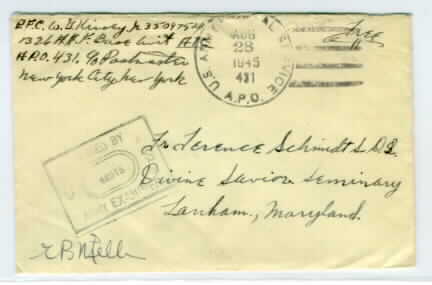 P.F.C. W. G. Kinsey Jr. 35097574
1326 A.A.F. Base Unit A.P.O.
A.P.O. 431, % Postmaster
New York City, New York
U.S. ARMY POSTAL SERVICE
AUG
28
1945
431
A.P.O.
Free
Fr. Terence Schmidt S.D.S.
Divine Savior Seminary
Lanham, Maryland.
BY
ARMY EXAMINER